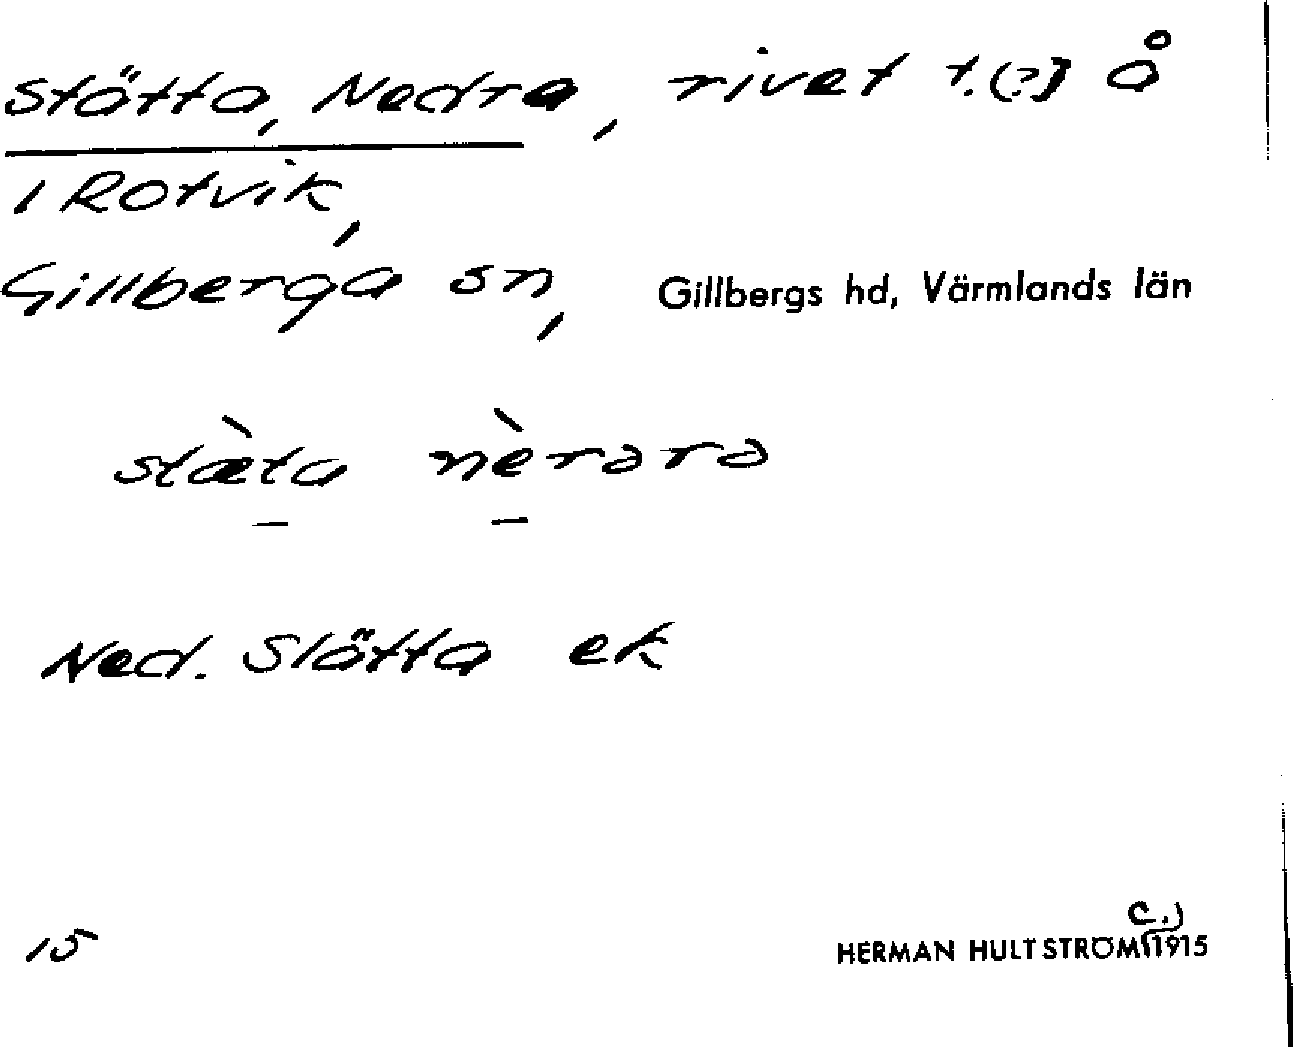 Stötta, Nedra, rivet t.(?] å
i Rotvik,
Gillberga sn, Gillbergs hd, Värmlands län
stæ̀ta nèrərə
Ned. Slötta ek
15
HERMAN HULTSTRÖM (c.) 1915